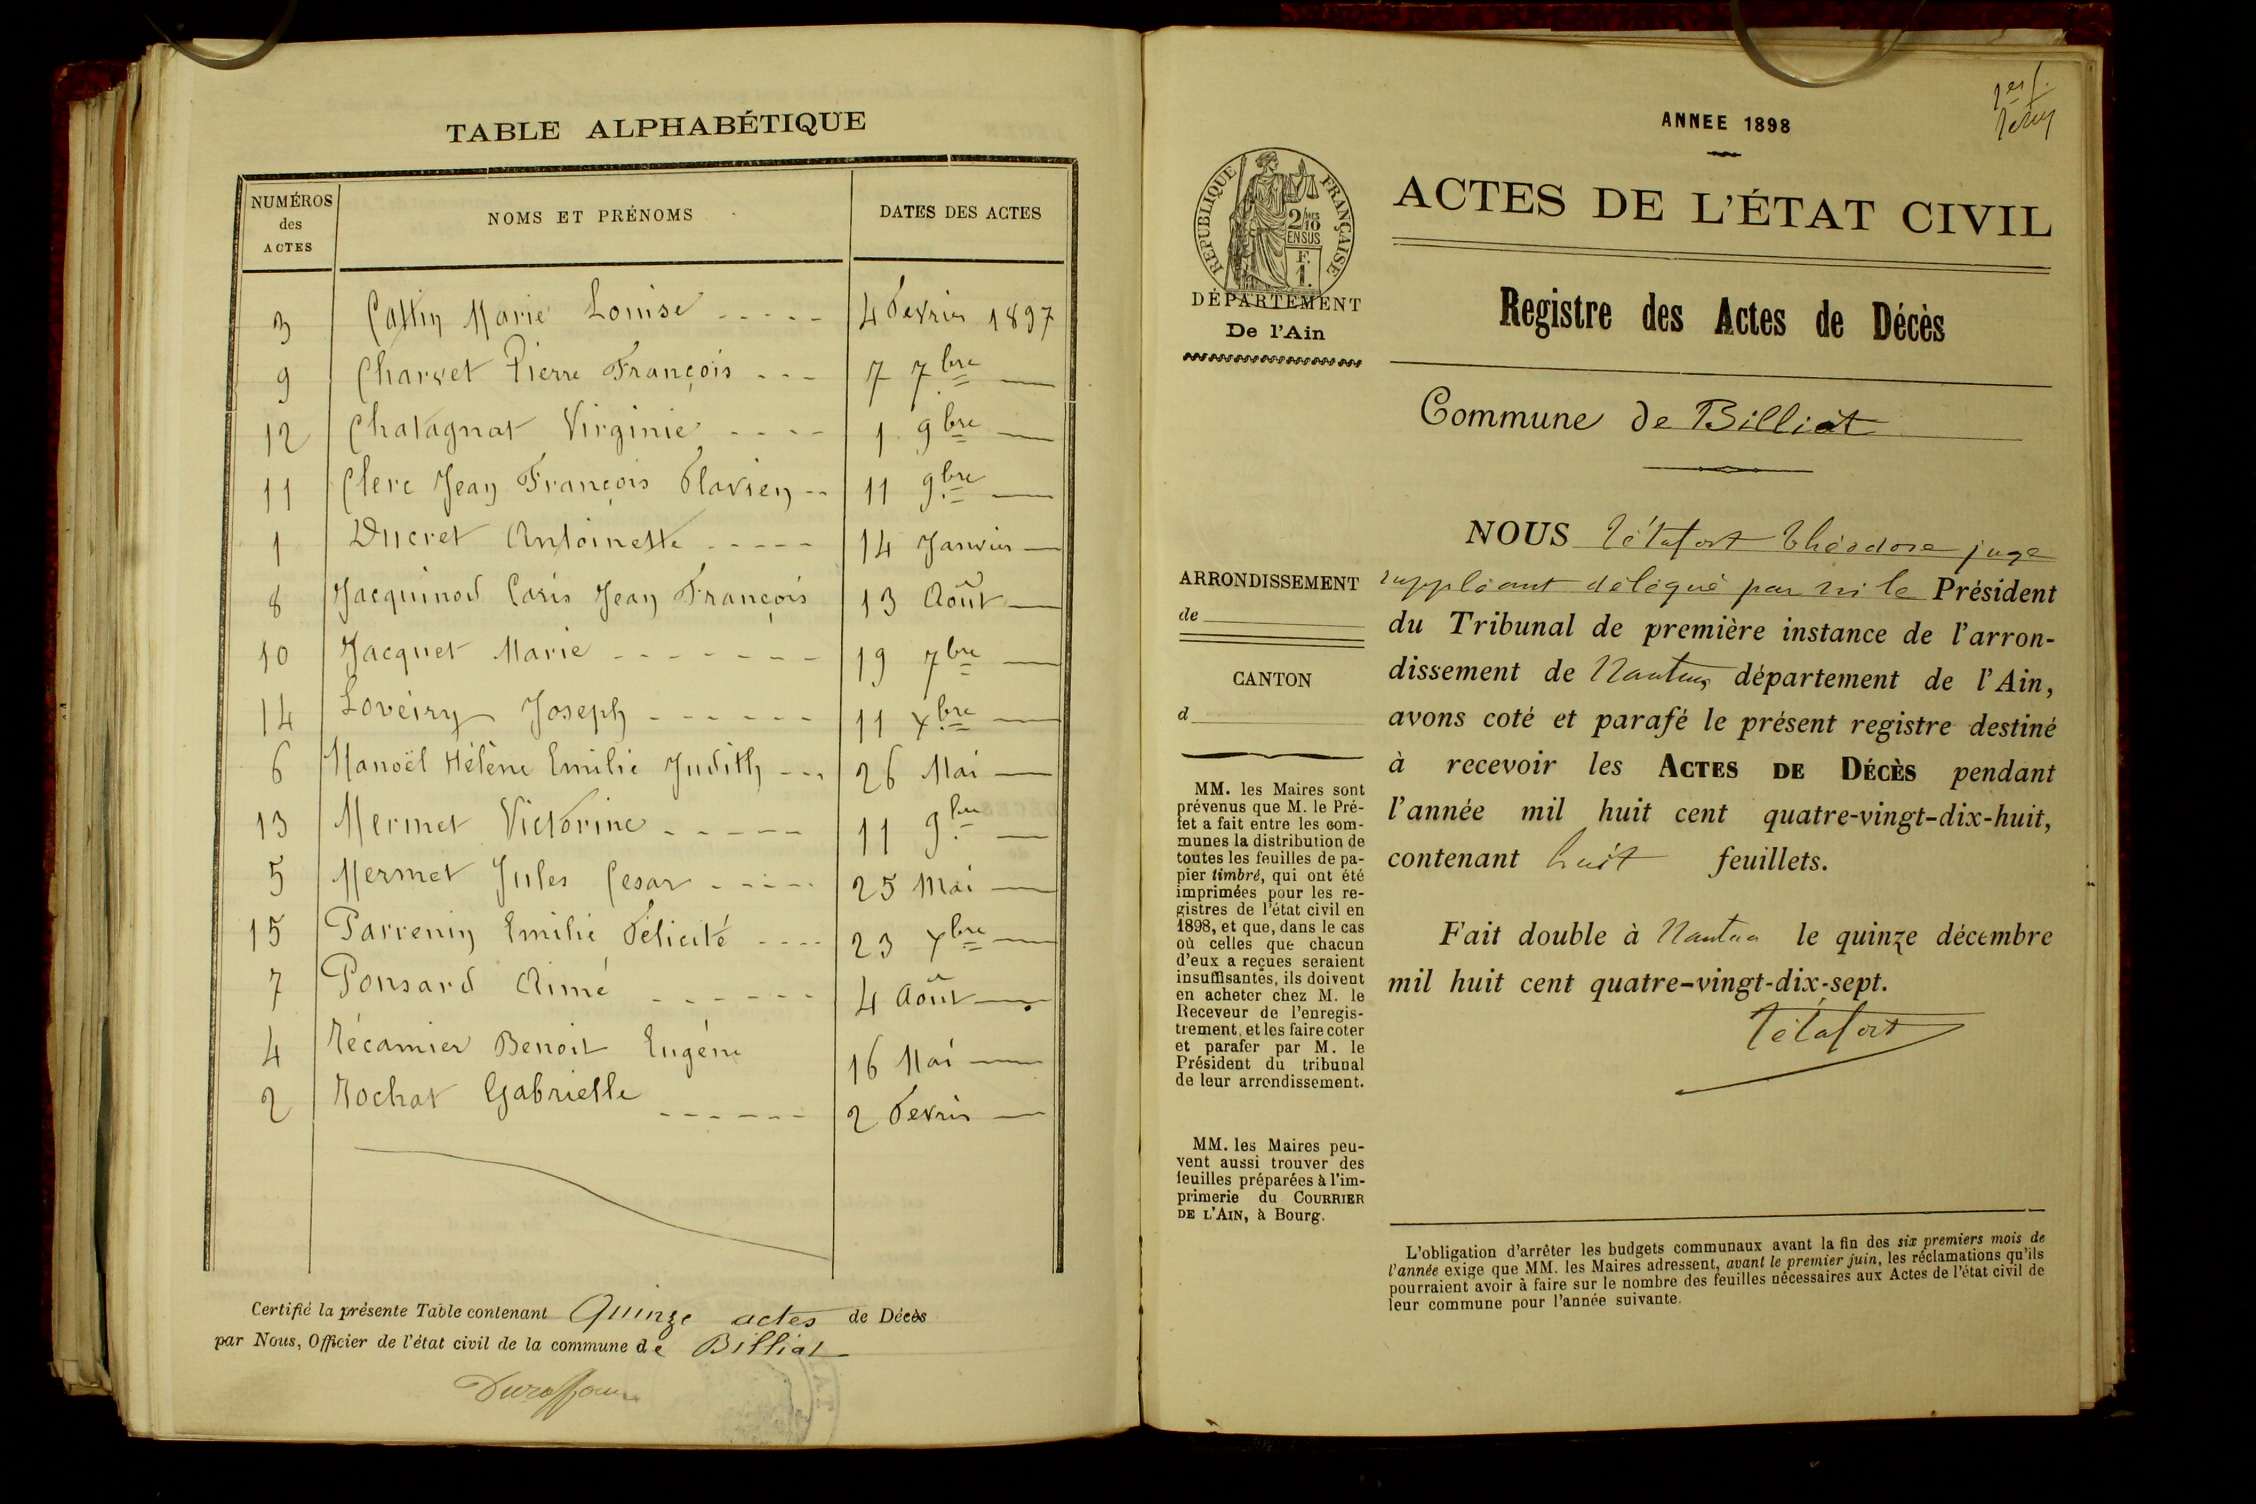 TABLE ALPHABÉTIQUE
NUMÉROS
des
ACTES
NOMS ET PRÉNOMS
DATES DES ACTES
3 Marie Louise 4 Fevrier 1897
9 Charvet Pierre François 7 7bre
12 Chatagnat Virginie 1 9bre
11 Clerc Jean François Flavien 11 9bre
1 Ducret Antoinette 14 Janvier
8 Jacquinod Jean François 13 Août
10 Jacquet Marie 19 7bre
14 Joseph 11 xbre
6 Manoël Hélène Emilie Judith 26 Mai
13 Mermet Victorine 11 9bre
5 Mermet Jules Cesar 25 Mai
15 Parrenin Emilie Félicité 23 xbre
7 Ponsard Aimé 4 Août
4 Récamier Benoit Eugène 16 Mai
2 Rochat Gabrielle 2 Fevrier
Certifié la présente Table contenant Quinze actes de Décès
par Nous, Officier de l'état civil de la commune de Billiat
1er f.
ANNEE 1898
RÉPUBLIQUE FRANÇAISE
2/10
EN SUS
F.
1.
ACTES DE L'ÉTAT CIVIL
DÉPARTEMENT
De l'Ain
Registre des Actes de Décès
Commune de Billiat
ARRONDISSEMENT
de
CANTON
d
MM. les Maires sont
prévenus que M. le Pré-
fet a fait entre les com-
munes la distribution de
toutes les feuilles de pa-
pier timbré, qui ont été
imprimées pour les re-
gistres de l'état civil en
1898, et que, dans le cas
où celles que chacun
d'eux a reçues seraient
insuffisantes, ils doivent
en acheter chez M. le
Receveur de l'enregis-
trement, et les faire coter
et parafer par M. le
Président du tribunal
de leur arrondissement.
MM. les Maires peu-
vent aussi trouver des
feuilles préparées à l'im-
primerie du COURRIER
DE L'AIN, à Bourg.
NOUS Tétafort Théodore juge
suppléant délégué par Mr le Président
du Tribunal de première instance de l'arron-
dissement de Nantua département de l'Ain,
avons coté et parafé le présent registre destiné
à recevoir les ACTES DE DÉCÈS pendant
l'année mil huit cent quatre-vingt-dix-huit,
contenant huit feuillets.
Fait double à Nantua le quinze décembre
mil huit cent quatre-vingt-dix-sept.
Tétafort
L'obligation d'arrêter les budgets communaux avant la fin des six premiers mois de
l'année exige que MM. les Maires adressent, avant le premier juin, les réclamations qu'ils
pourraient avoir à faire sur le nombre des feuilles nécessaires aux Actes de l'état civil de
leur commune pour l'année suivante.